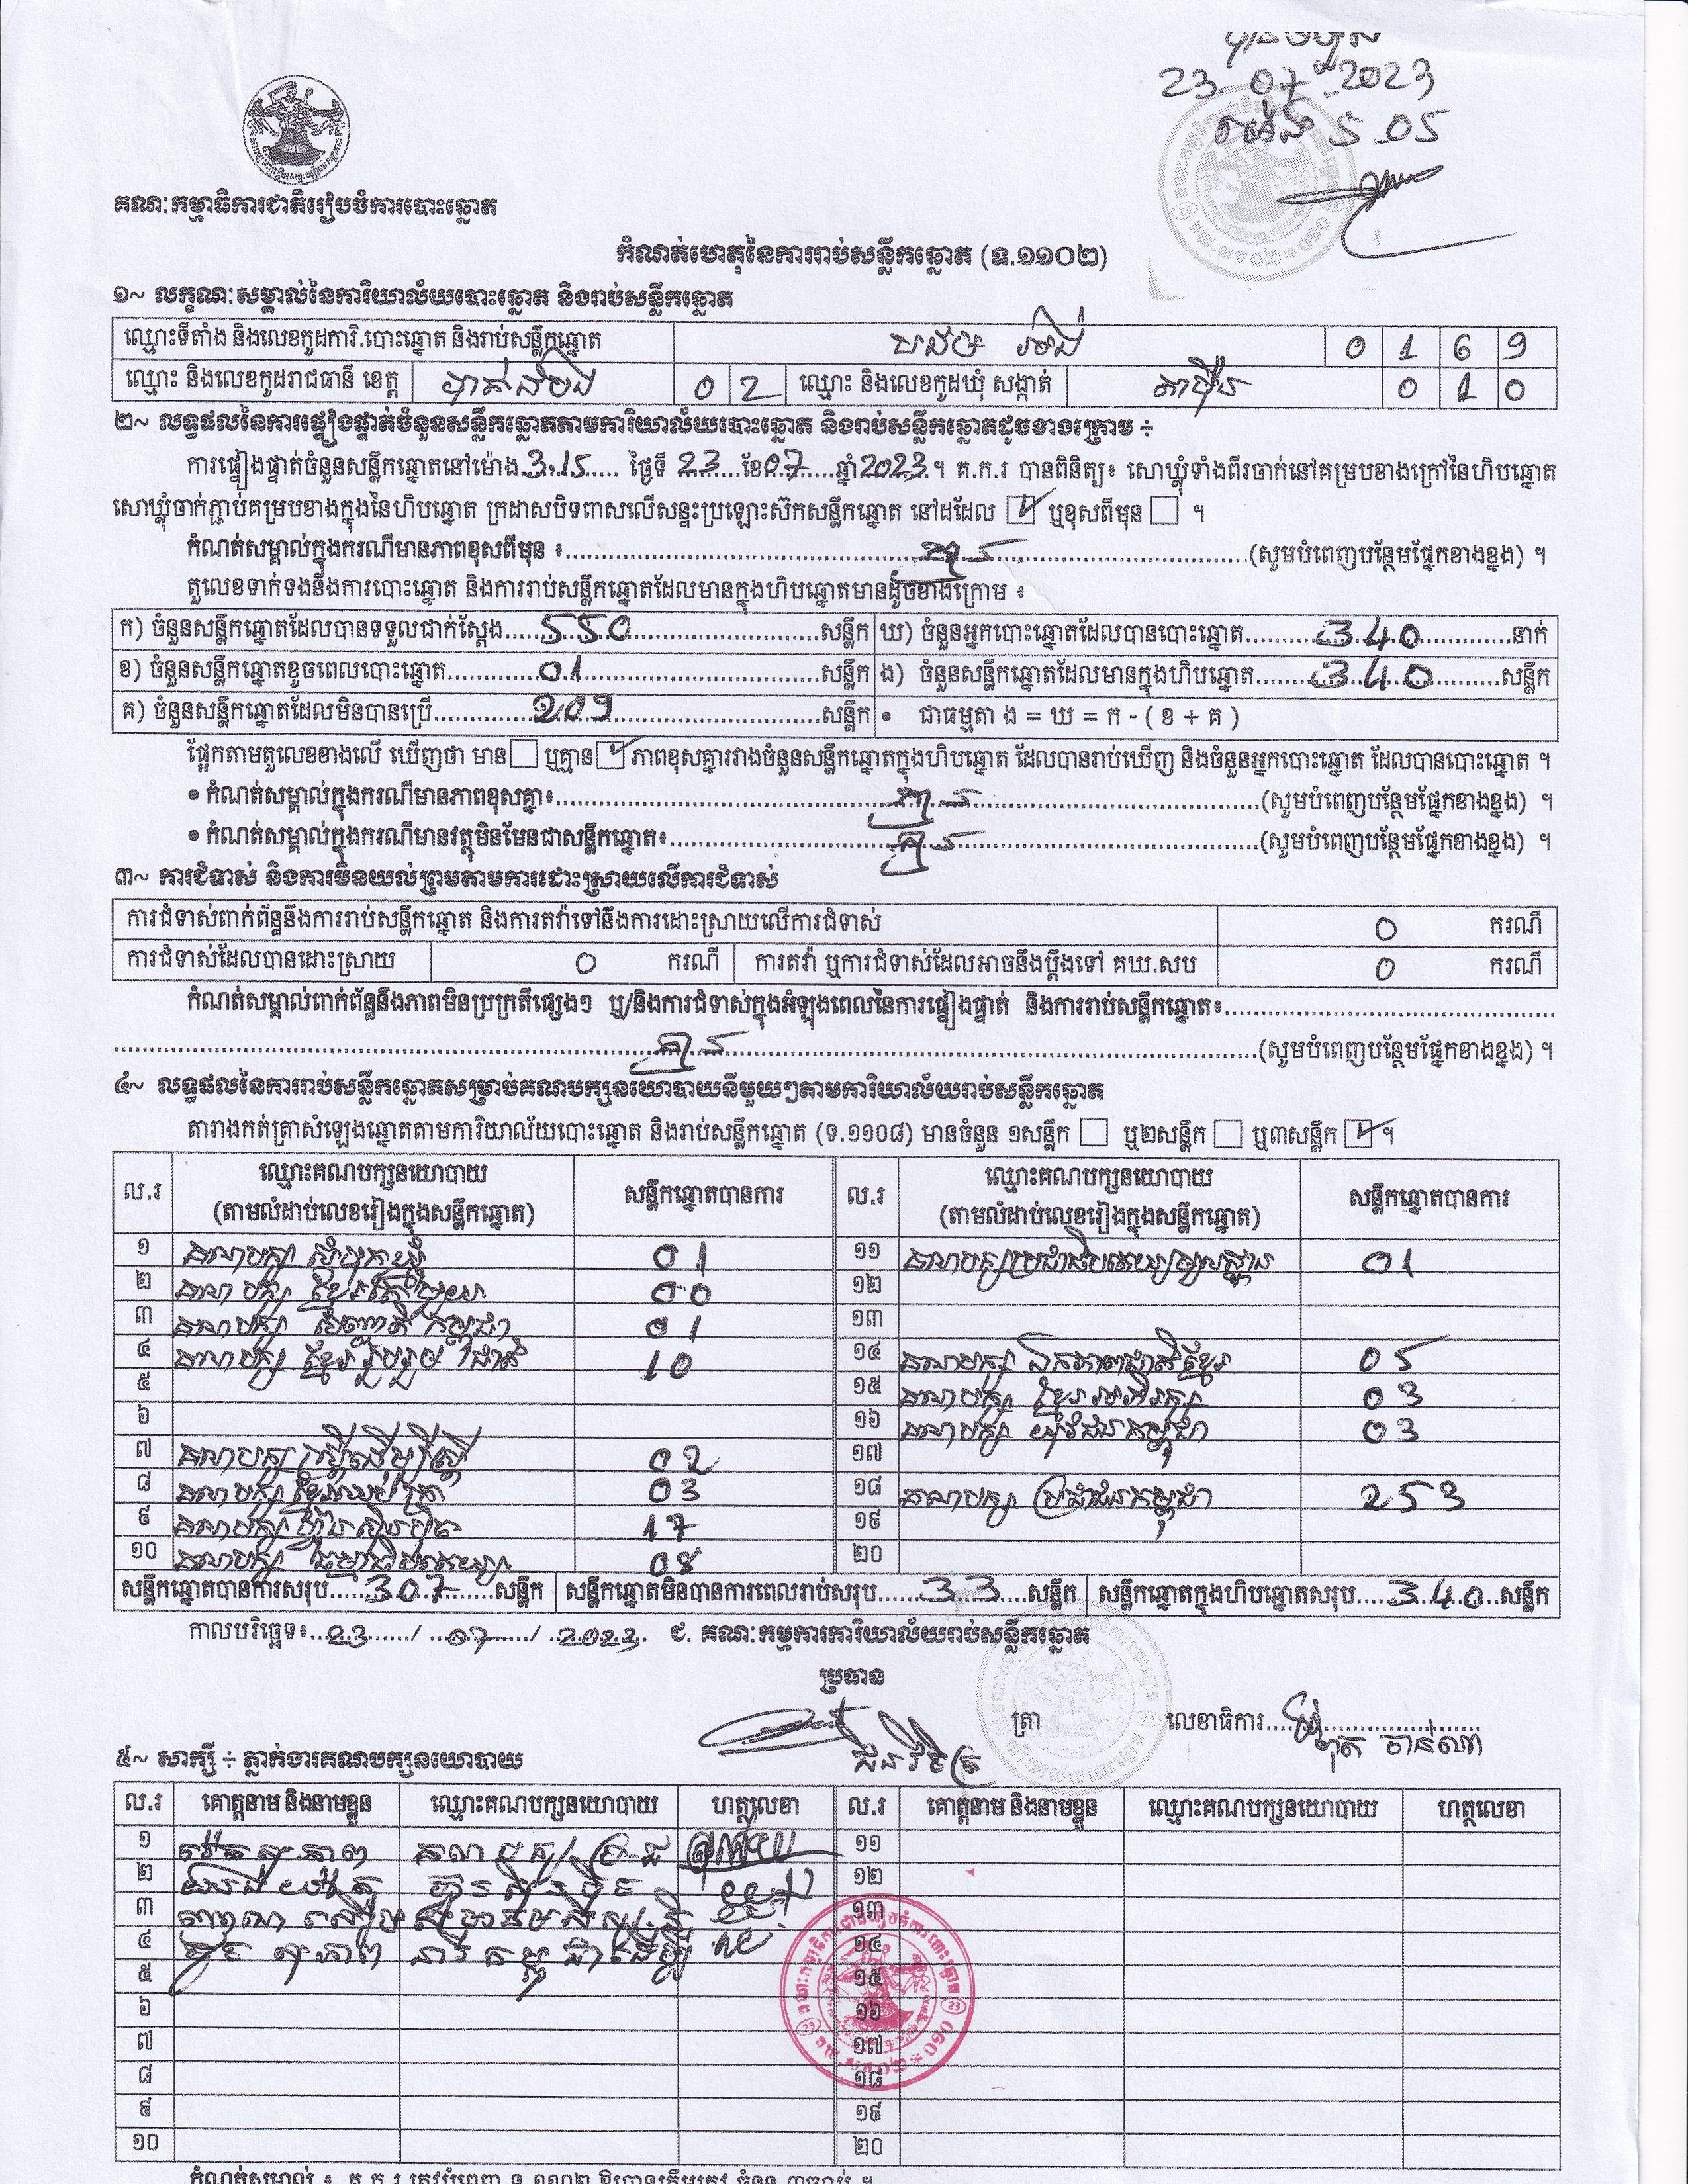 23.07.2023
ម៉ោង 5.05
គណៈកម្មាធិការជាតិរៀបចំការបោះឆ្នោត
កំណត់ហេតុនៃការរាប់សន្លឹកឆ្នោត (ទ.១១០២)
១~ លក្ខណៈសម្គាល់នៃការិយាល័យបោះឆ្នោត និងរាប់សន្លឹកឆ្នោត
ឈ្មោះទីតាំង និងលេខកូដការិ.បោះឆ្នោត និងរាប់សន្លឹកឆ្នោត 0 1 6 9
ឈ្មោះ និងលេខកូដរាជធានី ខេត្ត បាត់ដំបង 0 2 ឈ្មោះ និងលេខកូដឃុំ សង្កាត់ តាប៉ុន 0 1 0
២~ លទ្ធផលនៃការផ្ទៀងផ្ទាត់ចំនួនសន្លឹកឆ្នោតតាមការិយាល័យបោះឆ្នោត និងរាប់សន្លឹកឆ្នោតដូចខាងក្រោម ÷
ការផ្ទៀងផ្ទាត់ចំនួនសន្លឹកឆ្នោតនៅម៉ោង 3.15 ថ្ងៃទី 23 ខែ 07 ឆ្នាំ 2023 ។ គ.ក.រ បានពិនិត្យ៖ សោឃ្លុំទាំងពីរចាក់នៅគម្របខាងក្រៅនៃហិបឆ្នោត
សោឃ្លុំចាក់ភ្ជាប់គម្របខាងក្នុងនៃហិបឆ្នោត ក្រដាសបិទពាសលើសន្ទះប្រឡោះស៊កសន្លឹកឆ្នោត នៅដដែល ☑ ឬខុសពីមុន ☐ ។
កំណត់សម្គាល់ក្នុងករណីមានភាពខុសពីមុន ៖ គ្មាន (សូមបំពេញបន្ថែមផ្នែកខាងខ្នង) ។
តួលេខទាក់ទងនឹងការបោះឆ្នោត និងការរាប់សន្លឹកឆ្នោតដែលមានក្នុងហិបឆ្នោតមានដូចខាងក្រោម ៖
ក) ចំនួនសន្លឹកឆ្នោតដែលបានទទួលជាក់ស្តែង 550 សន្លឹក ឃ) ចំនួនអ្នកបោះឆ្នោតដែលបានបោះឆ្នោត 340 នាក់
ខ) ចំនួនសន្លឹកឆ្នោតខូចពេលបោះឆ្នោត 01 សន្លឹក ង) ចំនួនសន្លឹកឆ្នោតដែលមានក្នុងហិបឆ្នោត 340 សន្លឹក
គ) ចំនួនសន្លឹកឆ្នោតដែលមិនបានប្រើ 209 សន្លឹក • ជាធម្មតា ង = ឃ = ក - ( ខ + គ )
ផ្អែកតាមតួលេខខាងលើ ឃើញថា មាន ☐ ឬគ្មាន ☑ ភាពខុសគ្នារវាងចំនួនសន្លឹកឆ្នោតក្នុងហិបឆ្នោត ដែលបានរាប់ឃើញ និងចំនួនអ្នកបោះឆ្នោត ដែលបានបោះឆ្នោត ។
• កំណត់សម្គាល់ក្នុងករណីមានភាពខុសគ្នា៖ គ្មាន (សូមបំពេញបន្ថែមផ្នែកខាងខ្នង) ។
• កំណត់សម្គាល់ក្នុងករណីមានវត្ថុមិនមែនជាសន្លឹកឆ្នោត៖ គ្មាន (សូមបំពេញបន្ថែមផ្នែកខាងខ្នង) ។
៣~ ការជំទាស់ និងការមិនយល់ព្រមតាមការដោះស្រាយលើការជំទាស់
ការជំទាស់ពាក់ព័ន្ធនឹងការរាប់សន្លឹកឆ្នោត និងការតវ៉ាទៅនឹងការដោះស្រាយលើការជំទាស់ 0 ករណី
ការជំទាស់ដែលបានដោះស្រាយ 0 ករណី ការតវ៉ា ឬការជំទាស់ដែលអាចនឹងប្តឹងទៅ គឃ.សប 0 ករណី
កំណត់សម្គាល់ពាក់ព័ន្ធនឹងភាពមិនប្រក្រតីផ្សេងៗ ឬ/និងការជំទាស់ក្នុងអំឡុងពេលនៃការផ្ទៀងផ្ទាត់ និងការរាប់សន្លឹកឆ្នោត៖
គ្មាន (សូមបំពេញបន្ថែមផ្នែកខាងខ្នង) ។
៤~ លទ្ធផលនៃការរាប់សន្លឹកឆ្នោតសម្រាប់គណបក្សនយោបាយនីមួយៗតាមការិយាល័យរាប់សន្លឹកឆ្នោត
តារាងកត់ត្រាសំឡេងឆ្នោតតាមការិយាល័យបោះឆ្នោត និងរាប់សន្លឹកឆ្នោត (ទ.១១០៨) មានចំនួន ១សន្លឹក ☐ ឬ២សន្លឹក ☐ ឬ៣សន្លឹក ☑ ។
ល.រ ឈ្មោះគណបក្សនយោបាយ (តាមលំដាប់លេខរៀងក្នុងសន្លឹកឆ្នោត) សន្លឹកឆ្នោតបានការ ល.រ ឈ្មោះគណបក្សនយោបាយ (តាមលំដាប់លេខរៀងក្នុងសន្លឹកឆ្នោត) សន្លឹកឆ្នោតបានការ
១ គណបក្ស សំបុកឃ្មុំ 01 ១១ គណបក្សប្រជាធិបតេយ្យមូលដ្ឋាន 01
២ គណបក្ស ខ្មែរតែមួយ 00 ១២
៣ គណបក្ស សញ្ជាតិកម្ពុជា 01 ១៣
៤ គណបក្ស ខ្មែររួបរួមជាតិ 10 ១៤ គណបក្ស ឯកភាពជាតិខ្មែរ 05
៥ ១៥ គណបក្ស ខ្មែរអភិរក្ស 03
៦ ១៦ គណបក្ស យុវជនកម្ពុជា 03
៧ គណបក្ស ស្ត្រីដើម្បីស្ត្រី 02 ១៧
៨ គណបក្ស ខ្មែរឈប់ក្រ 03 ១៨ គណបក្ស ប្រជាជនកម្ពុជា 253
៩ គណបក្ស ហ្វ៊ុនស៊ិនប៉ិច 17 ១៩
១០ គណបក្ស ធម្មាធិបតេយ្យ 08 ២០
សន្លឹកឆ្នោតបានការសរុប 307 សន្លឹក សន្លឹកឆ្នោតមិនបានការពេលរាប់សរុប 33 សន្លឹក សន្លឹកឆ្នោតក្នុងហិបឆ្នោតសរុប 340 សន្លឹក
កាលបរិច្ឆេទ៖ 23 / 07 / 2023 ជ. គណៈកម្មការការិយាល័យរាប់សន្លឹកឆ្នោត
ប្រធាន
ត្រា លេខាធិការ
៥~ សាក្សី ÷ ភ្នាក់ងារគណបក្សនយោបាយ
ល.រ គោត្តនាម និងនាមខ្លួន ឈ្មោះគណបក្សនយោបាយ ហត្ថលេខា ល.រ គោត្តនាម និងនាមខ្លួន ឈ្មោះគណបក្សនយោបាយ ហត្ថលេខា
១ គណបក្ស ប្រ.ជ ១១
២ ហ្វ៊ុនស៊ិនប៉ិច ១២
៣ ១៣
៤ ១៤
៥ ១៥
៦ ១៦
៧ ១៧
៨ ១៨
៩ ១៩
១០ ២០